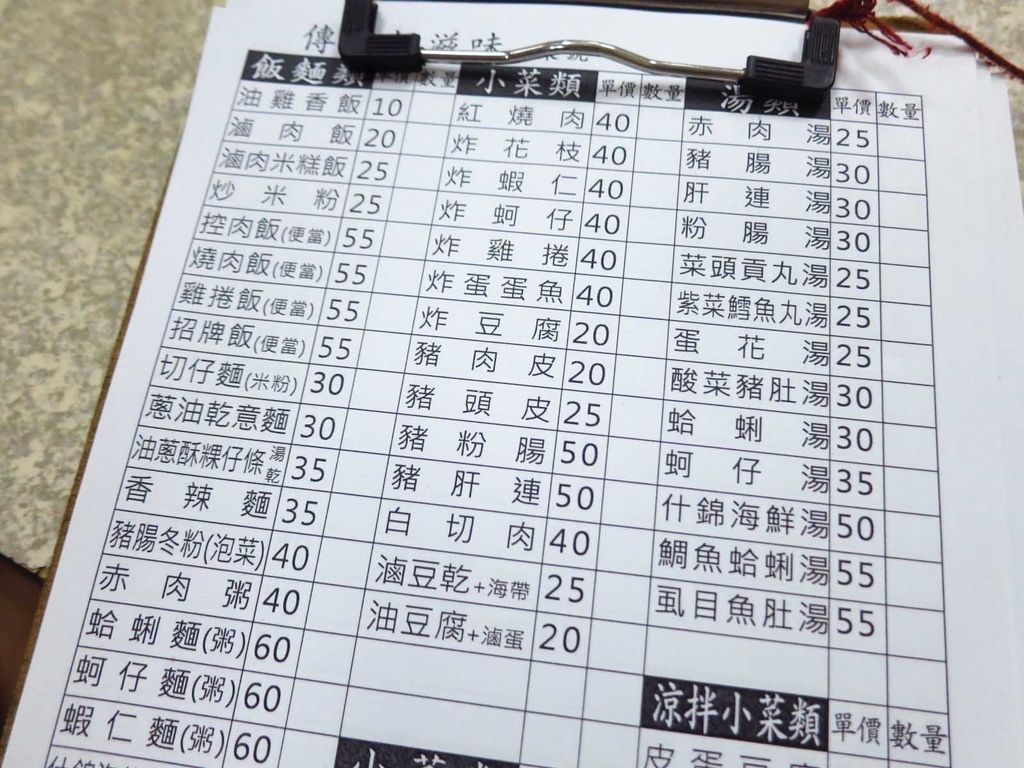 傳 滋味
飯麵類 單價 數量
油雞香飯 10
滷肉飯 20
滷肉米糕飯 25
炒米粉 25
控肉飯(便當) 55
燒肉飯(便當) 55
雞捲飯(便當) 55
招牌飯(便當) 55
切仔麵(米粉) 30
蔥油乾意麵 30
油蔥酥粿仔條 湯乾 35
香辣麵 35
豬腸冬粉(泡菜) 40
赤肉粥 40
蛤蜊麵(粥) 60
蚵仔麵(粥) 60
蝦仁麵(粥) 60
什錦海
小菜類 單價 數量
紅燒肉 40
炸花枝 40
炸蝦仁 40
炸蚵仔 40
炸雞捲 40
炸蛋蛋魚 40
炸豆腐 20
豬肉皮 20
豬頭皮 25
豬粉腸 50
豬肝連 50
白切肉 40
滷豆乾+海帶 25
油豆腐+滷蛋 20
小菜
湯類 單價 數量
赤肉湯 25
豬腸湯 30
肝連湯 30
粉腸湯 30
菜頭貢丸湯 25
紫菜鱈魚丸湯 25
蛋花湯 25
酸菜豬肚湯 30
蛤蜊湯 30
蚵仔湯 35
什錦海鮮湯 50
鯛魚蛤蜊湯 55
虱目魚肚湯 55
涼拌小菜類 單價 數量
皮蛋豆腐